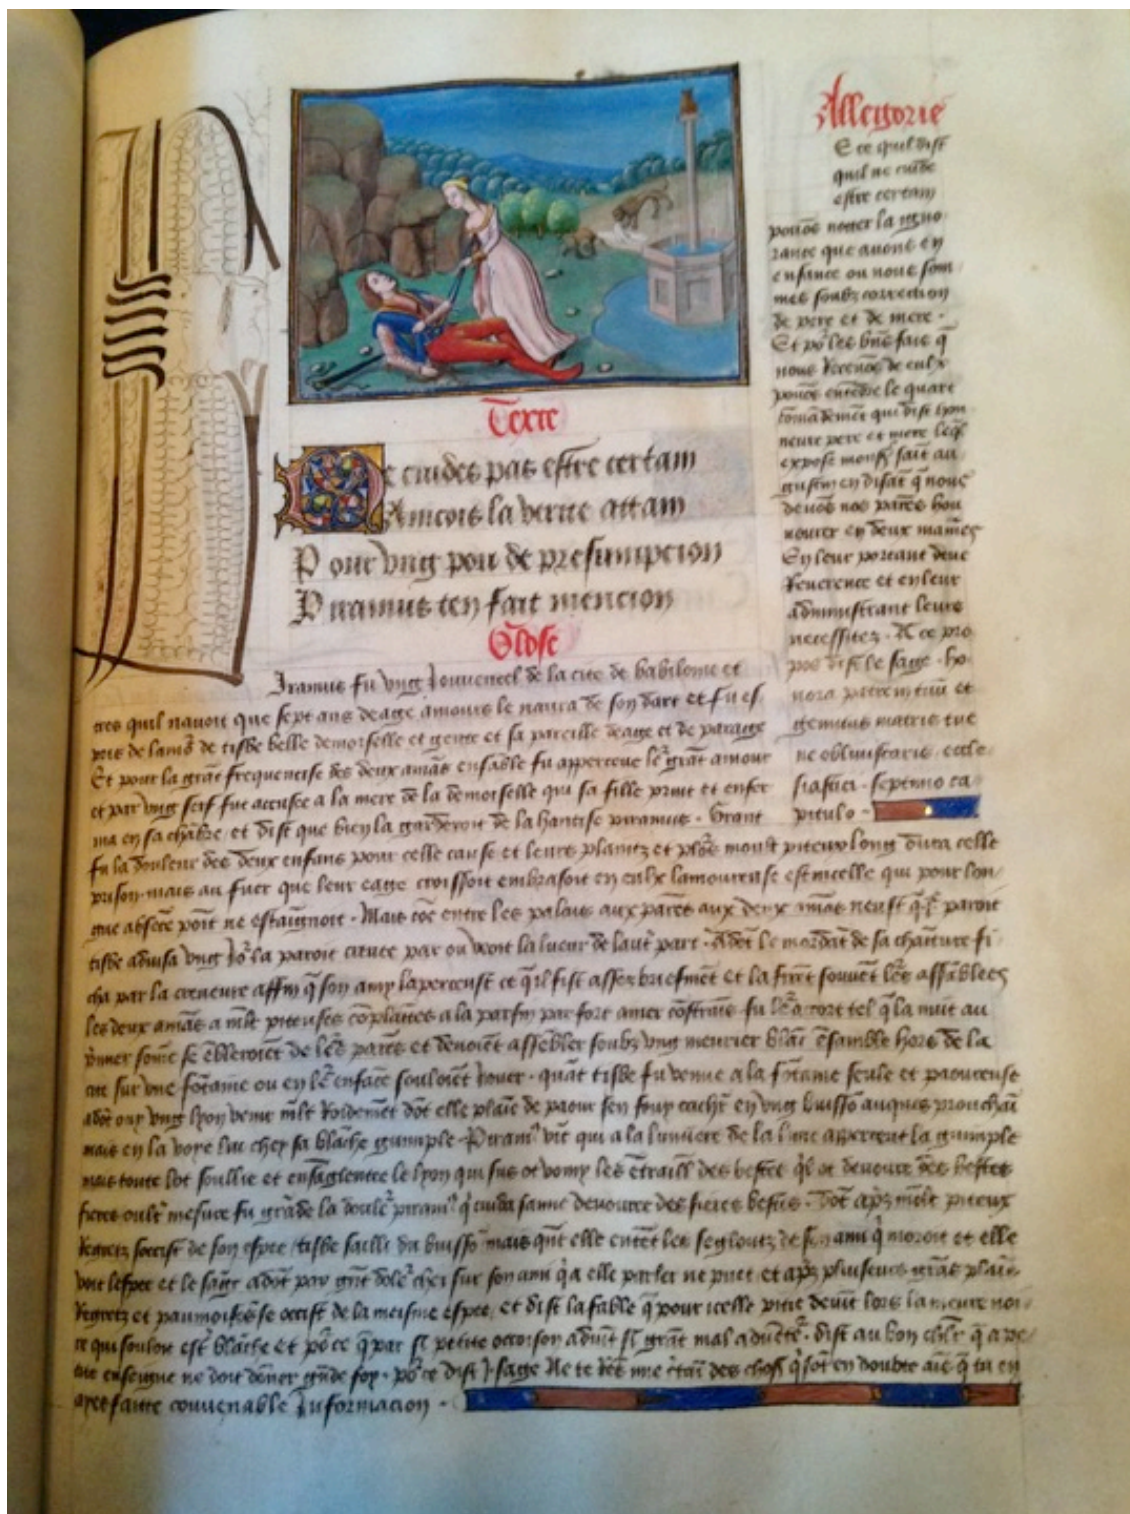 Texte
Ne cuides pas estre certain
Aincois la verite attain
Pour ung pou de presumpcion
Piramus ten fait mencion
Glose
Piramus fu ung Jouvencel de la cite de babilonne et
tres quil navoit que sept ans de age amours le navra de son dart et fu es
pris de lamo᷑ de tisbe belle demoiselle et gente et sa pareille de age et de paraige
Et pour la grāt frequentise des deux amās ensāble fu apperceue le᷑ grāt amour
et par ung serf fut accusee a la mere de la demoiselle qui sa fille print et enfer
ma en sa chābre et dist que bien la garderoit de la hantise piramus · Grant
fu la douleur des deux enfans pour celle cause et leurs plaintz et plo᷑s moult piteux long dura celle
prison mais au fuer que leur eage croissoit embrasoit en eulx lamoureuse estincelle qui pour lon
gue absēce poīt ne estaignoit · Mais cōe entre les palais aux parēs aux deux amās neust q̄ paroit
tisbe advisa ung Jo᷑ la paroit crevee par ou veoit la lueur de laut᷑ part · Adōt le mordāt de sa chainture fi
cha par la creveure affin q̄ son amy laperceust ce q̄l fist assez briefmēt et la firēt souvēt le᷑s assāblees
les deux amās a mlt piteuses cōplaītes a la parfin par fort amer cōstrais fu le᷑ acort tel q̄ la nuit au
p̄mier sōme se ēbleroiēt de le᷑s parēs et devoiēt assēbler soubz ung meurier blāc ēsamble hors de la
cite sur une fōtaine ou en le᷑ enfāce souloiēt Jouer · quāt tisbe fu venue a la fōtaine seule et paoureuse
adōt oyt ung lyon venir mlt Roidemēt dōt elle plaīe de paour sen fouy cachr en ung buissō auques prouchaī
mais en la voye lui chey sa blāche guimple · Piram᷒ vīt qui a la lumiere de la lune apperceut la guimple
mais toute lot soullie et ensāglentee le lyon qui sus ot vomy les ētraill᷑ des bestes q̄l ot devoure des bestes
fieres oult᷑ mesure fu grāde la doule᷑ piram᷒ q̄ cuida samie devouree des fieres bestes · Dōt ap̄s mlt piteux
Regretz soccist de son espee / tisbe sailli du buissō mais qnt elle entēt les segloutz de son ami q̄ moroit et elle
voit lespee et le sanc adōt par grāt dole᷑ chei sur son ami q̄ a elle parler ne puet et ap̄s pluseurs grās plaīs
Regretz et paumoisōs se occist de la meisme espee et dist la fable q̄ pour icelle pitie devīt lors la meure noi
re qui souloit est᷑ blāche et po᷑ce q̄ par si petite occoison advīt si grāt mal advētu᷑ · dist au bon chlr᷑ q̄ a pe
tite enseigne ne doit dōner gnde foy · po᷑ce dist J sage Ne te Rēs mie c᷑taī des choses q̄ sōt en doubte aīc q̄ tu en
ayes faitte convenable Informacion ·
Allegorie
E ce quil dist
quil ne cuide
estre certain
povōs noter la igno
rance que avons en
enfance ou nous som
mes soubz correction
de pere et de mere ·
Et po᷑ les bn̄s fais q̄
nous Recevōs de eulx
povōs entēdre le quart
cōmādemēt qui dist hon
neure pere et mere leq̄l
expose mons᷑ saīt au
gustin en disāt q̄ nous
devōs nos parēs hon
nourer en deux maniēs
En leur portant deue
Reverence et en leur
administrant leurs
necessitez · A ce pro
pos dist le sage · ho
nora patrem tuū et
gemitus matris tue
ne obliviscaris · eccle
siastici · septimo ca
pitulo ·